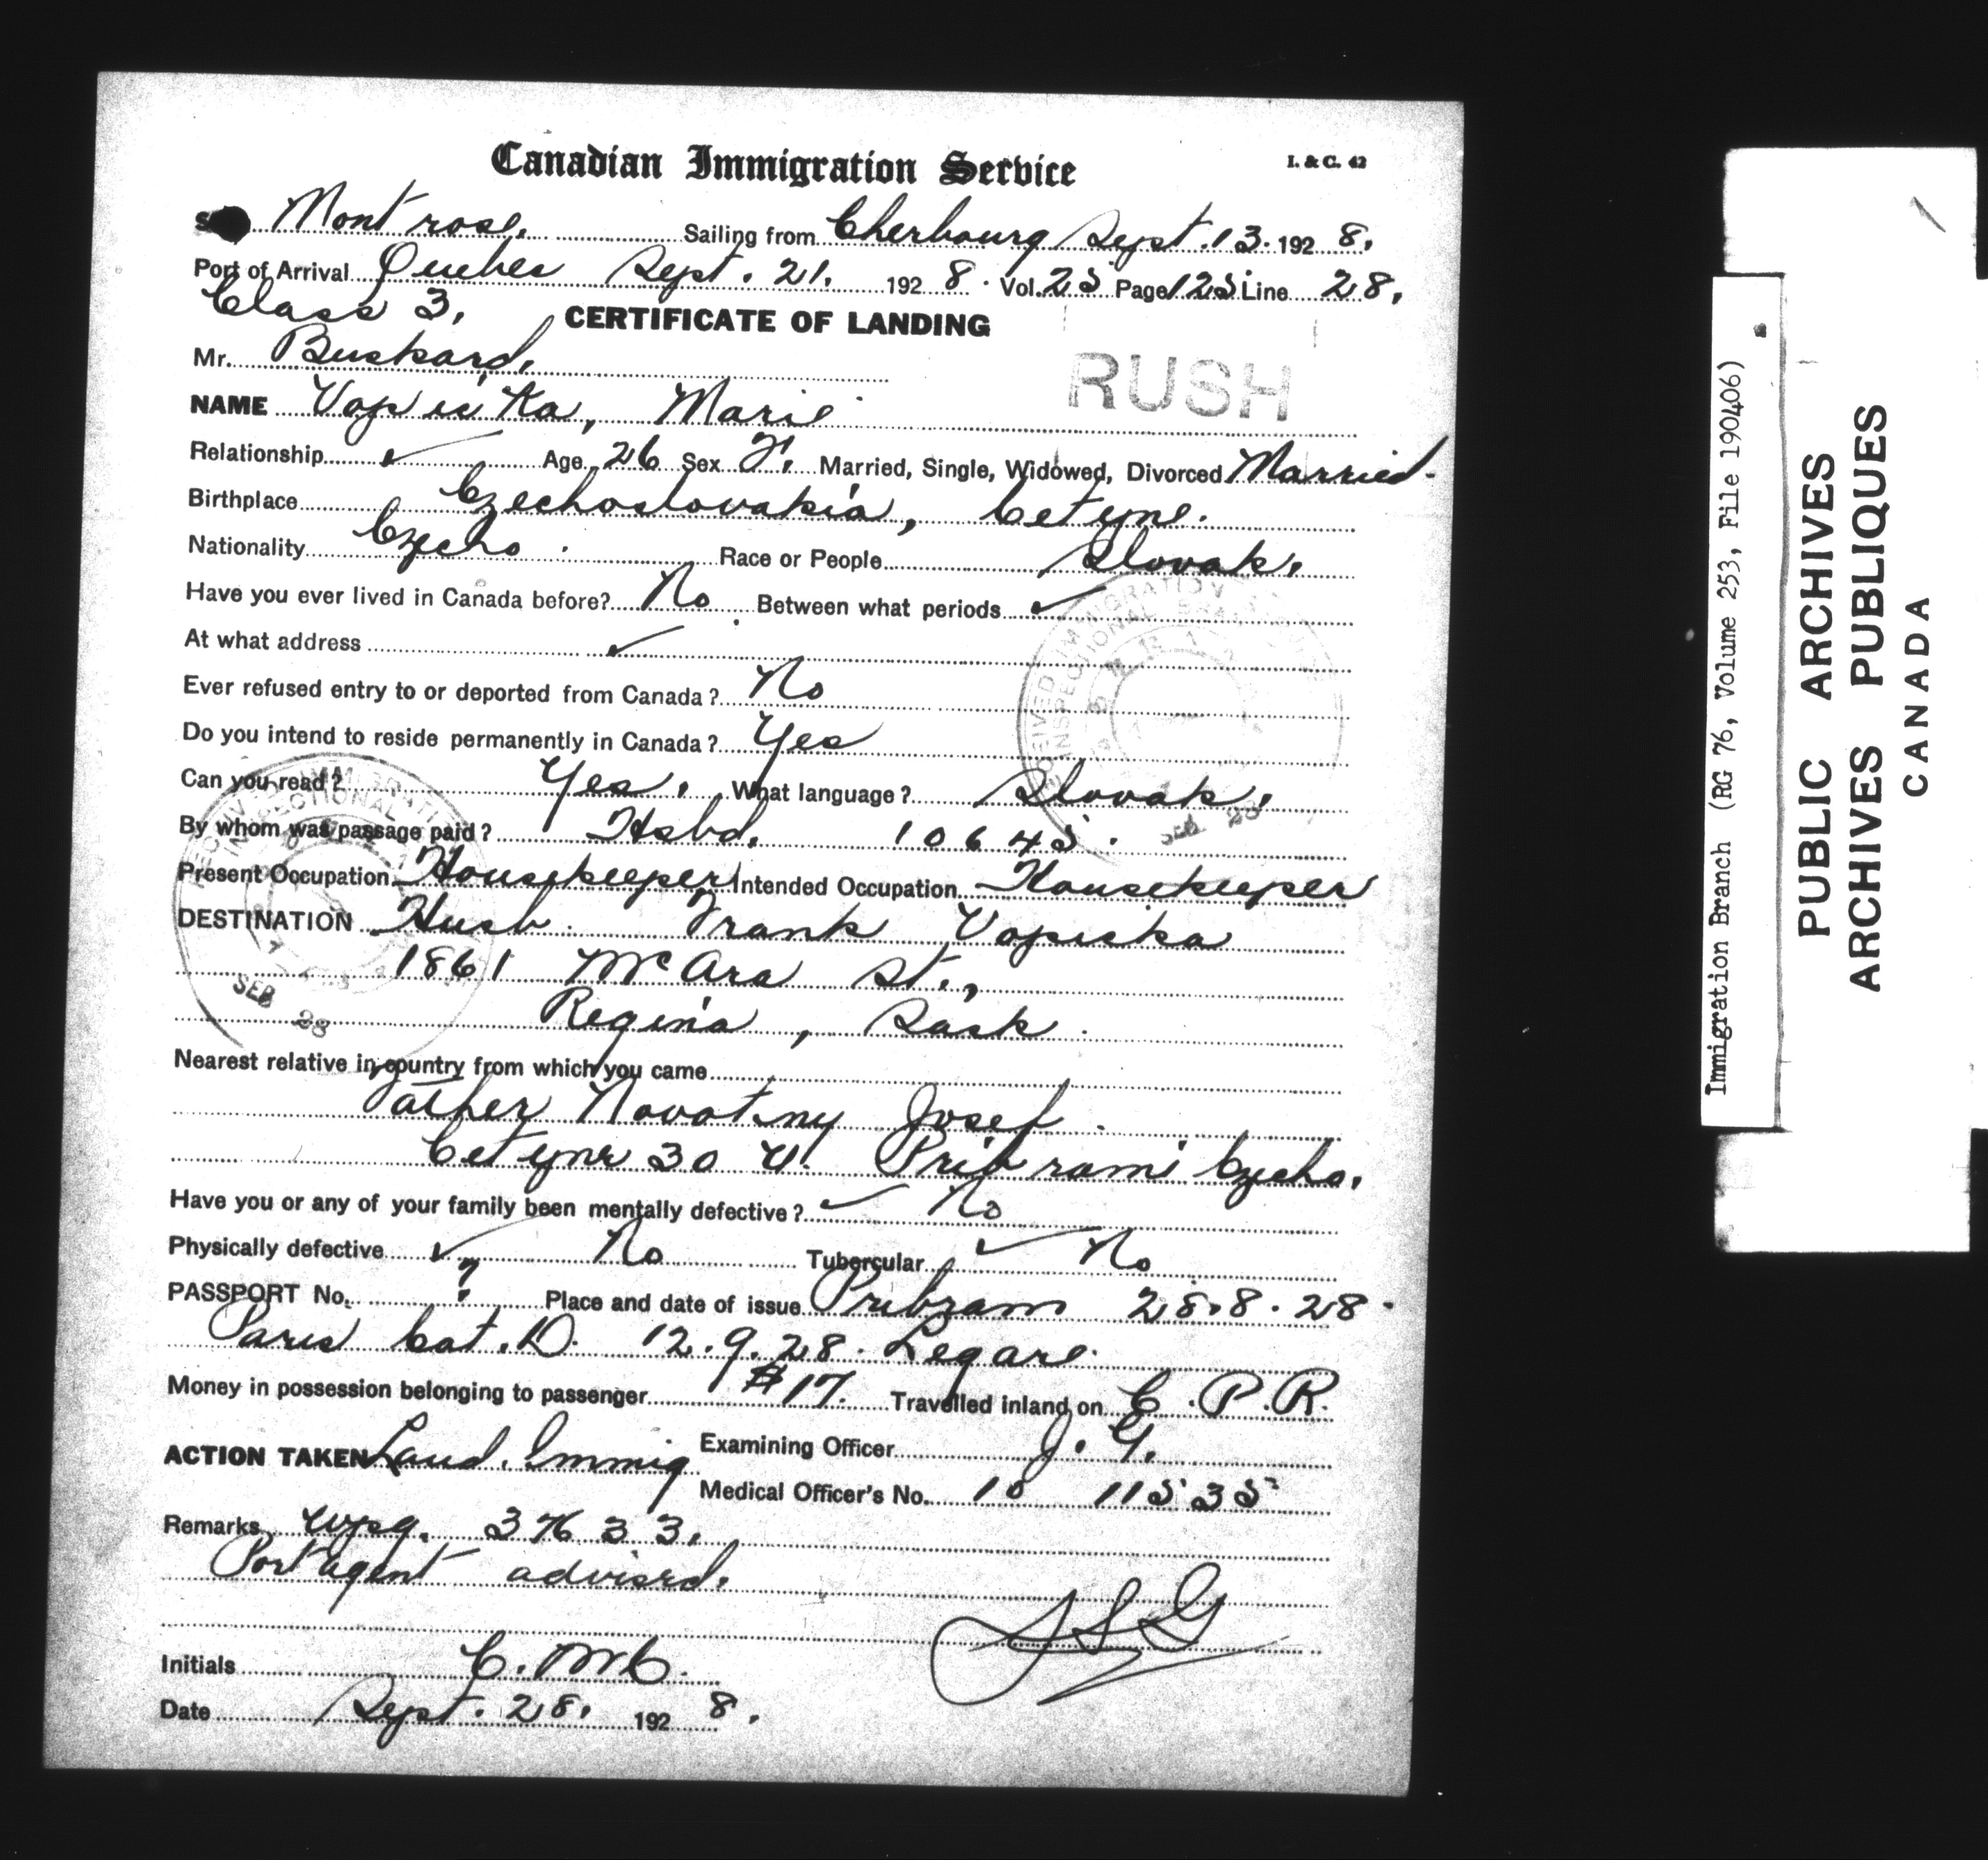 Canadian Immigration Service
I. & C. 42
Montrose. Sailing from Cherbourg Sept. 13. 1928.
Port of Arrival Quebec Sept. 21. 1928. Vol. 25 Page 125 Line 28.
Class 3. CERTIFICATE OF LANDING
Mr. Buskard.
RUSH
NAME Vopicka, Marie
Relationship Age 26 Sex F. Married, Single, Widowed, Divorced Married.
Birthplace Czechoslovakia, Cetyne.
Nationality Czecho. Race or People Slovak.
Have you ever lived in Canada before? No Between what periods
At what address
Ever refused entry to or deported from Canada? No
Do you intend to reside permanently in Canada? Yes
Can you read? Yes. What language? Slovak.
By whom was passage paid? Hsbd. 10645.
Present Occupation Housekeeper Intended Occupation Housekeeper
DESTINATION Husb. Frank Vopicka
1861 McAra St.,
Regina, Sask.
SEP 28
Nearest relative in country from which you came
Father Novotny Josef.
Cetyne 30 U. Pribrami Czecho.
Have you or any of your family been mentally defective? No
Physically defective No Tubercular No
PASSPORT No. ? Place and date of issue Pribram 28.8.28.
Paris Cat. D. 12.9.28. Legare.
Money in possession belonging to passenger $17. Travelled inland on C.P.R.
ACTION TAKEN Land. Immig Examining Officer J.G.
Medical Officer's No. 10 11535
Remarks Wpg. 37633.
Port agent advised.
Initials C. McC.
Date Sept. 28. 1928.
Immigration Branch (RG 76, Volume 253, File 190406)
PUBLIC ARCHIVES
ARCHIVES PUBLIQUES
CANADA